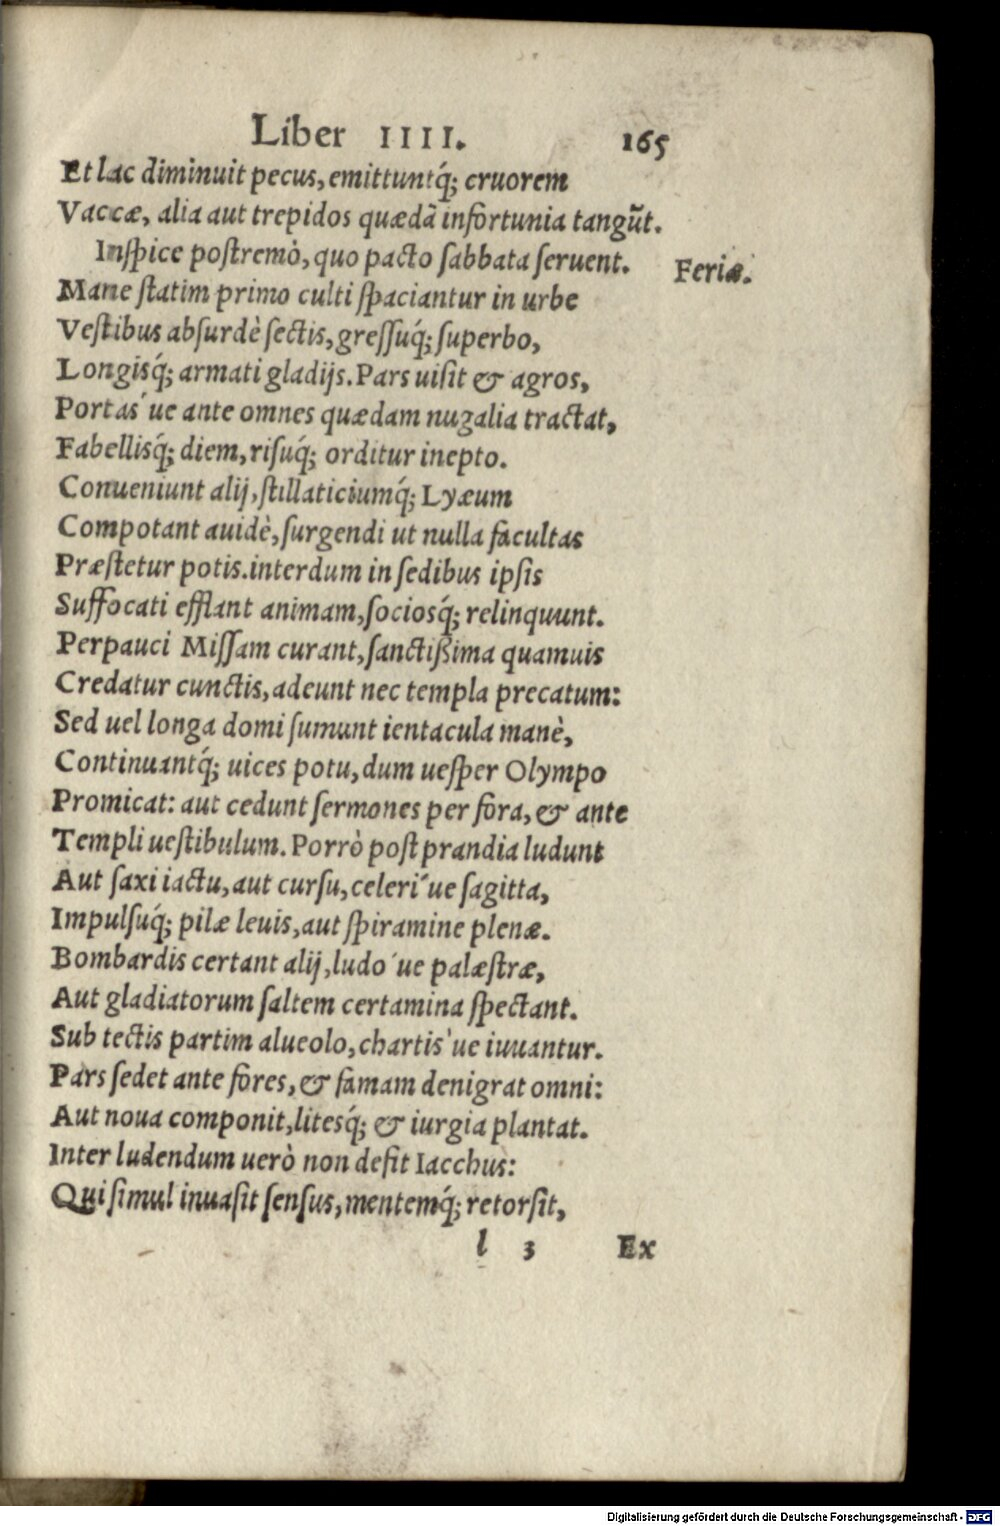 Liber IIII. 165
Et lac diminuit pecus, emittuntq́; cruorem
Vaccæ, alia aut trepidos quædã infortunia tangũt.
Inſpice poſtremò, quo pacto ſabbata ſeruent. Feriæ.
Mane ſtatim primo culti ſpaciantur in urbe
Veſtibus abſurdè ſectis, greſſuq́; ſuperbo,
Longisq́; armati gladijs. Pars uiſit & agros,
Portas´ue ante omnes quædam nugalia tractat,
Fabellisq́; diem, riſuq́; orditur inepto.
Conueniunt alij, ſtillaticiumq́; Lyæum
Compotant auidè, ſurgendi ut nulla facultas
Præſtetur potis. interdum in ſedibus ipſis
Suffocati efflant animam, ſociosq́; relinquunt.
Perpauci Miſſam curant, ſanctißima quamuis
Credatur cunctis, adeunt nec templa precatum:
Sed uel longa domi ſumunt ientacula manè,
Continuantq́; uices potu, dum ueſper Olympo
Promicat: aut cedunt ſermones per fora, & ante
Templi ueſtibulum. Porrò poſt prandia ludunt
Aut ſaxi iactu, aut curſu, celeri´ue ſagitta,
Impulſuq́; pilæ leuis, aut ſpiramine plenæ.
Bombardis certant alij, ludo´ue palæſtræ,
Aut gladiatorum ſaltem certamina ſpectant.
Sub tectis partim alueolo, chartis´ue iuuantur.
Pars ſedet ante fores, & famam denigrat omni:
Aut noua componit, litesq́; & iurgia plantat.
Inter ludendum uerò non defit Iacchus:
Qui ſimul inuaſit ſenſus, mentemq́; retorſit,
l 3 Ex
Digitalisierung gefördert durch die Deutsche Forschungsgemeinschaft - DFG